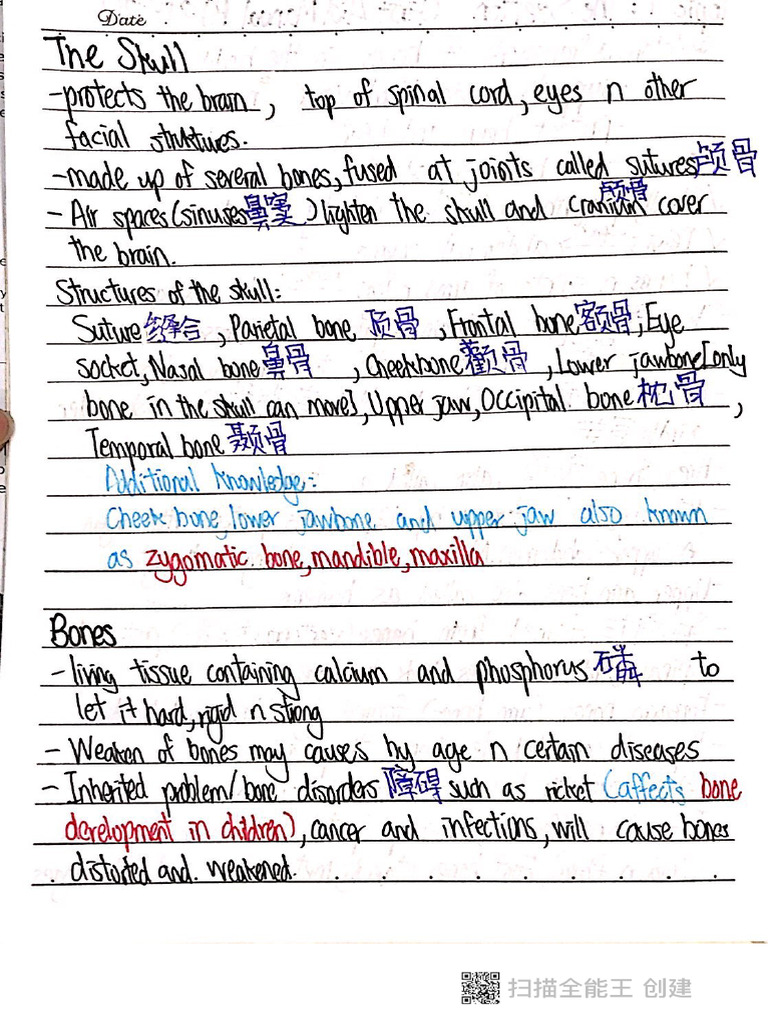 Date
The Skull
-protects the brain, top of spinal cord, eyes n other
facial struktures.
-made up of several bones, fused at joints called sutures颅骨
- Air spaces(sinuses鼻窦)lighten the skull and cranium颅骨 cover
the brain.
Structures of the skull:
Suture缝合, Parietal bone 顶骨, Frontal bone额骨, Eye
socket, Nasal bone鼻骨, Cheekbone颧骨, Lower jawbone[only
bone in the skull can move], Upper jaw, Occipital bone枕骨,
Temporal bone颞骨
Additional knowledge:
Cheek bone, lower jawbone and upper jaw also known
as zygomatic bone, mandible, maxilla
Bones
- living tissue containing calcium and phosphorus磷 to
let it hard, rigid n strong
- Weaken of bones may causes by age n certain diseases
- Inherited problem/bone disorders障碍such as ricket (affects bone
development in children), cancer and infections, will cause bones
distorted and weakened.
扫描全能王 创建